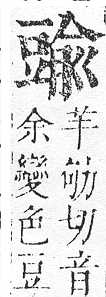 羊劬切音
余變色豆